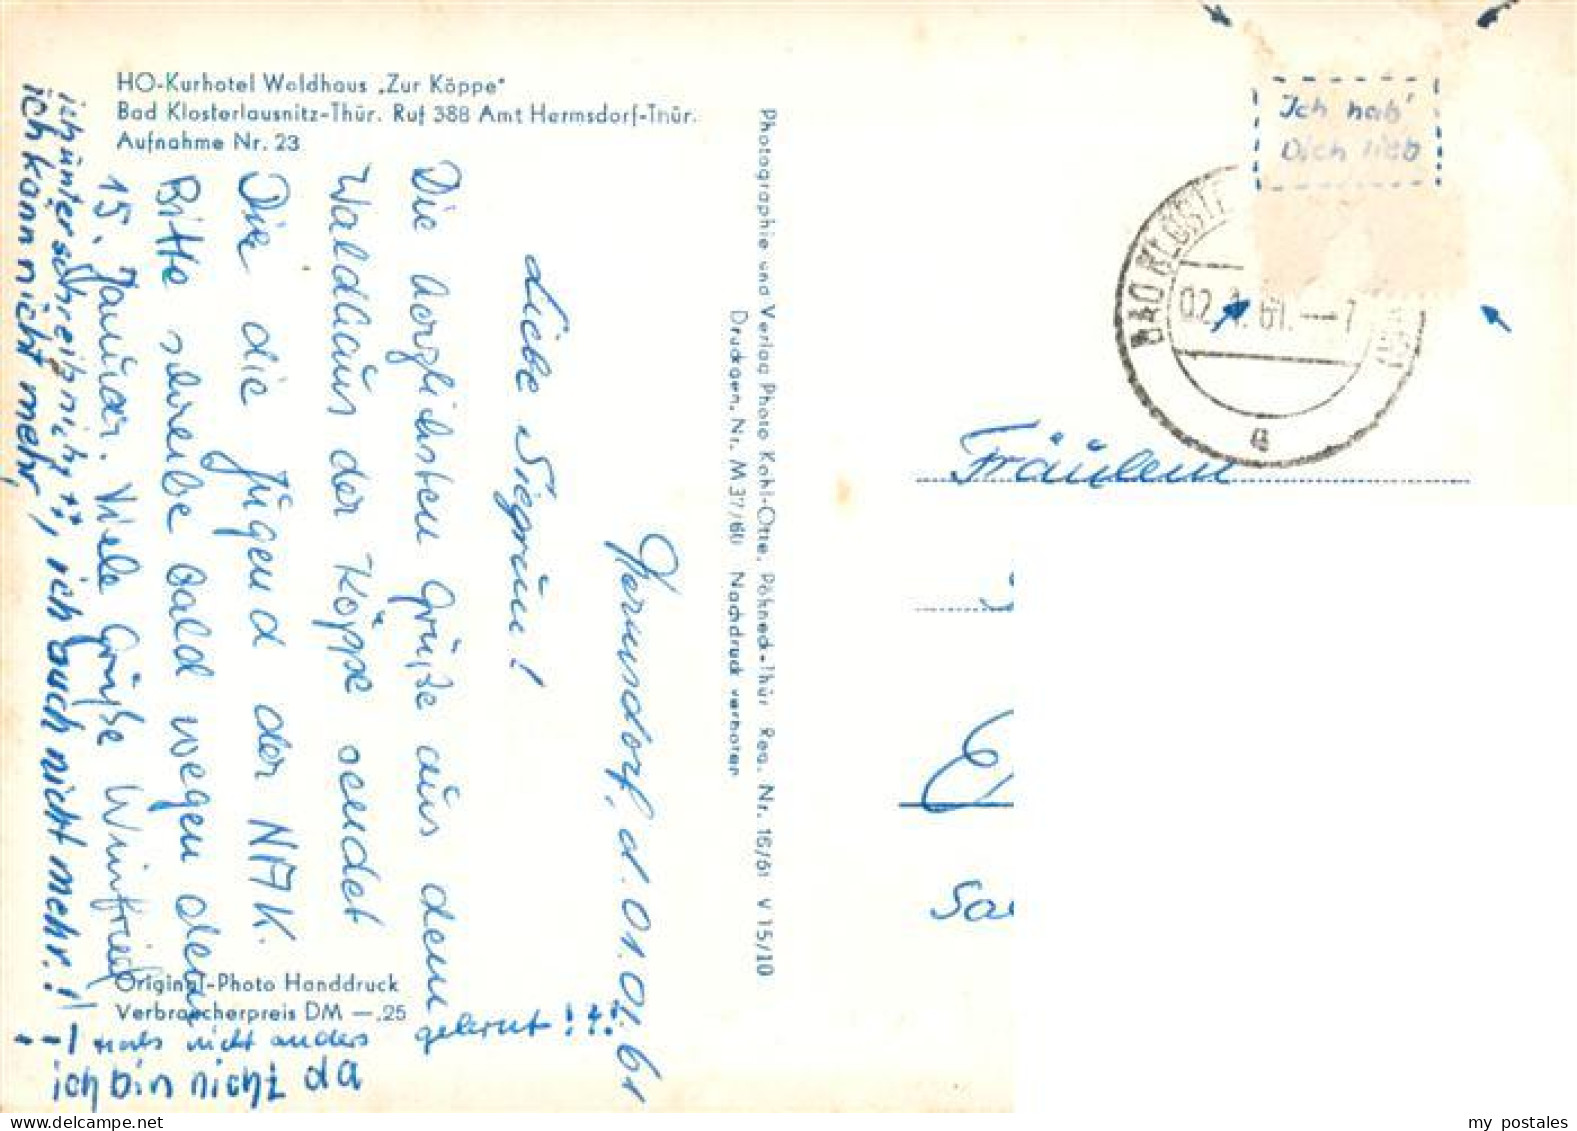 HO-Kurhotel Waldhaus „Zur Köppe"
Bad Klosterlausnitz-Thür. Ruf 388 Amt Hermsdorf-Thür.
Aufnahme Nr. 23
Hermsdorf, d. 01.01.61
Liebe Siegrun!
Die herzlichsten Grüße aus dem
Waldhaus der Köppe sendet
Dir die Jugend der NAK.
Bitte schreibe bald wegen dem
15. Januar. Viele Grüße Winfried
ich unterschreib nicht
ich kann nicht mehr, ich auch nicht mehr!!
Original-Photo Handdruck
Verbraucherpreis DM —.25
nicht anders gelernt!!!
ich bin nicht da
Photographie und Verlag Photo Kohl-Otte, Pößneck-Thür Reg. Nr. 16/61 V 15/10
Druckgen. Nr. M 37/60 Nachdruck verboten
Ich hab'
Dich lieb
BAD KLOSTE
02.1.61.—7
a
Fräulein
my postales